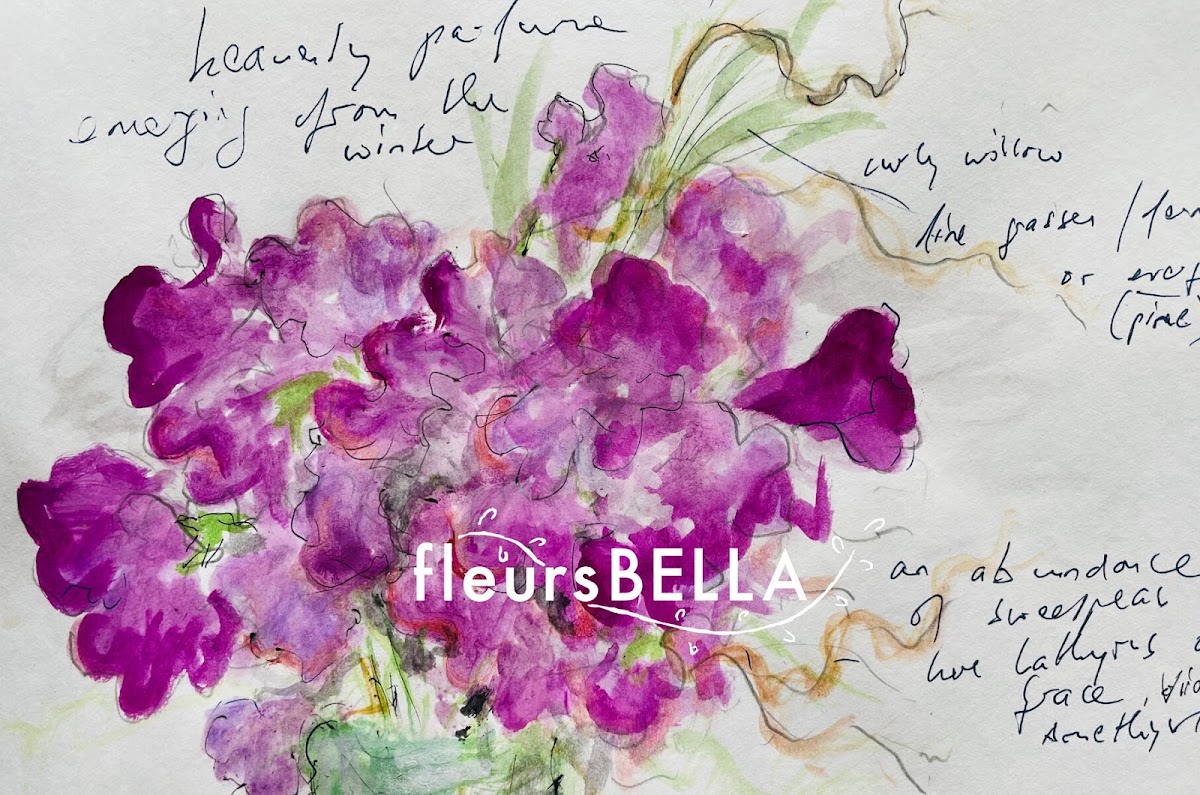 heavenly parfume
emerging from the
winter
curly willow
fine grasses /
or
(pine)
fleursBELLA
an abundance
of sweetpeas
here Lathyrus
grace,